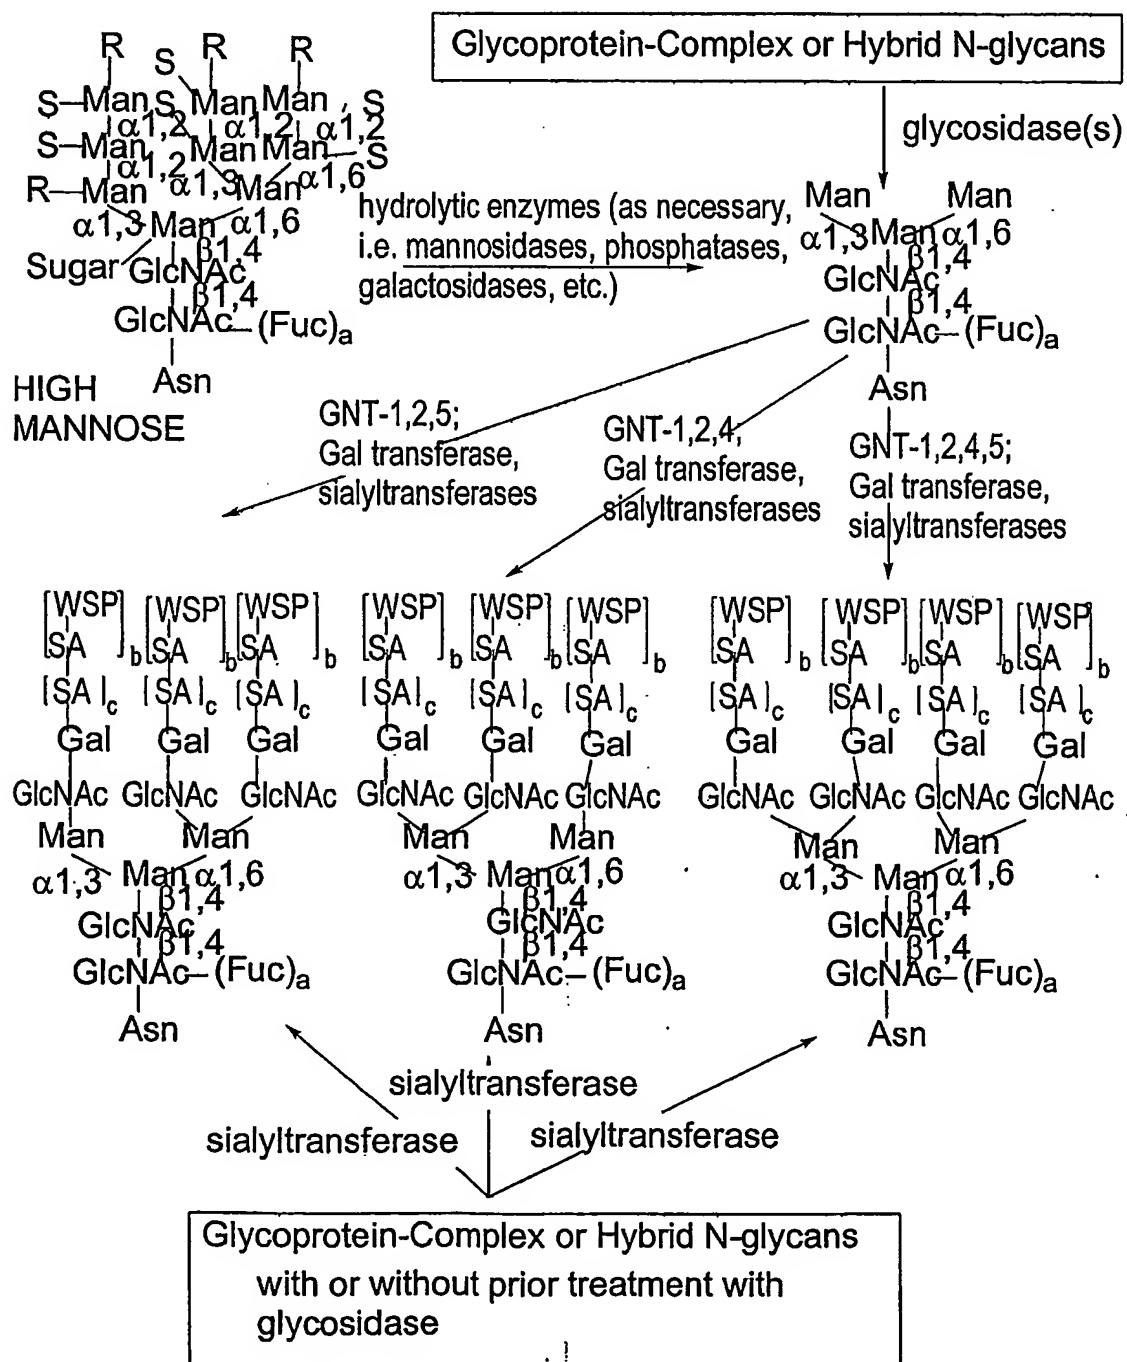 Glycoprotein-Complex or Hybrid N-glycans
glycosidase(s)
R R R
S
S–Man S Man Man S
α1,2 α1,2 α1,2
S–Man Man Man S
α1,2 α1,3 α1,6
R–Man Man
α1,3 Man α1,6
β1,4
Sugar GlcNAc
β1,4
GlcNAc–(Fuc)a
Asn
HIGH
MANNOSE
hydrolytic enzymes (as necessary,
i.e. mannosidases, phosphatases,
galactosidases, etc.)
Man Man
α1,3 Man α1,6
β1,4
GlcNAc
β1,4
GlcNAc–(Fuc)a
Asn
GNT-1,2,5;
Gal transferase,
sialyltransferases
GNT-1,2,4;
Gal transferase,
sialyltransferases
GNT-1,2,4,5;
Gal transferase,
sialyltransferases
[WSP] [WSP] [WSP]
[SA]b [SA]b [SA]b
[SA]c [SA]c [SA]c
Gal Gal Gal
GlcNAc GlcNAc GlcNAc
Man Man
α1,3 Man α1,6
β1,4
GlcNAc
β1,4
GlcNAc–(Fuc)a
Asn
[WSP] [WSP] [WSP]
[SA]b [SA]b [SA]b
[SA]c [SA]c [SA]c
Gal Gal Gal
GlcNAc GlcNAc GlcNAc
Man Man
α1,3 Man α1,6
β1,4
GlcNAc
β1,4
GlcNAc–(Fuc)a
Asn
[WSP] [WSP] [WSP] [WSP]
[SA]b [SA]b [SA]b [SA]b
[SA]c [SA]c [SA]c [SA]c
Gal Gal Gal Gal
GlcNAc GlcNAc GlcNAc GlcNAc
Man Man
α1,3 Man α1,6
β1,4
GlcNAc
β1,4
GlcNAc–(Fuc)a
Asn
sialyltransferase
sialyltransferase
sialyltransferase
Glycoprotein-Complex or Hybrid N-glycans
with or without prior treatment with
glycosidase